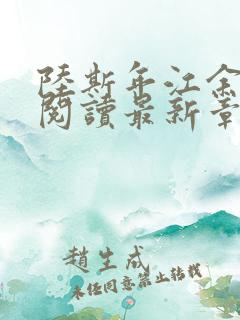 陸斯年江余
閱讀最新章
趙生成
未經同意禁止轉載